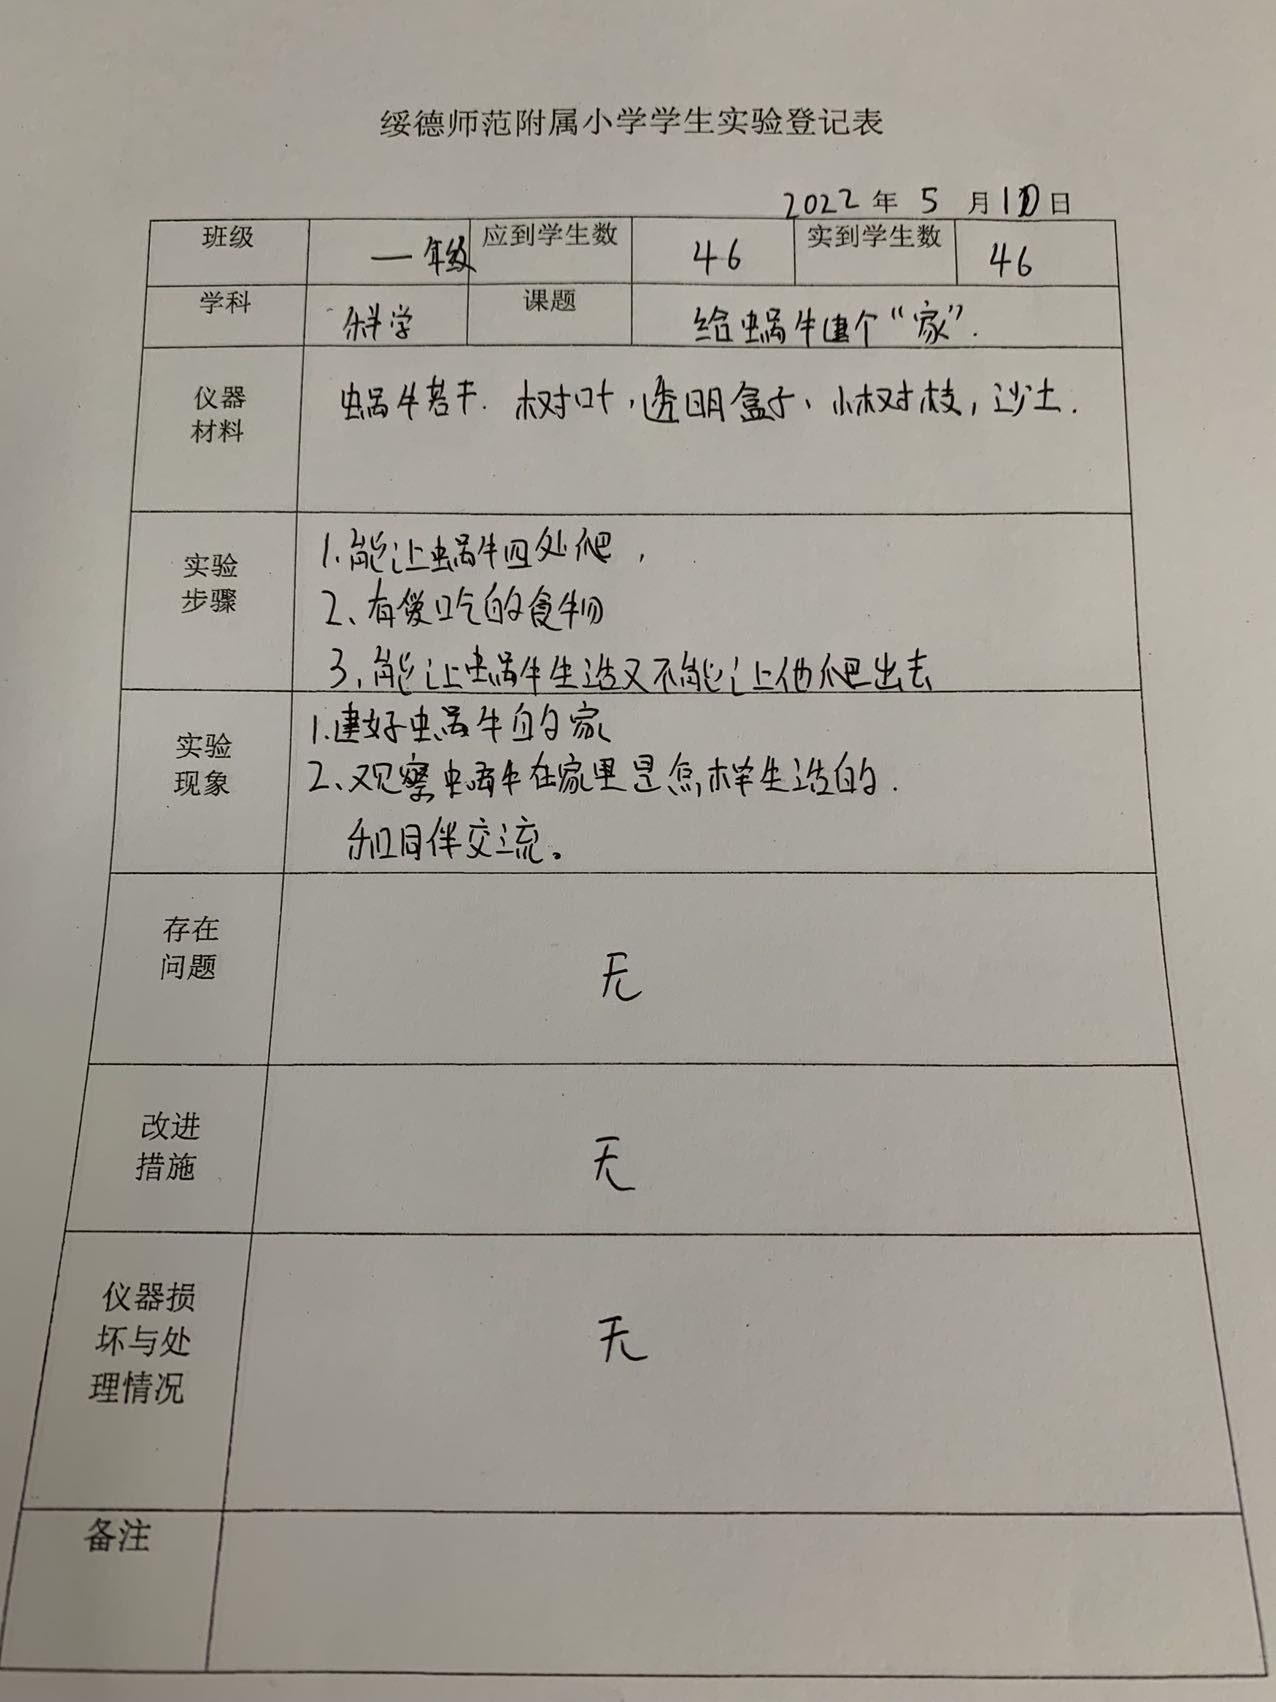 绥德师范附属小学学生实验登记表
2022年5月10日
班级 一年级 应到学生数 46 实到学生数 46
学科 科学 课题 给蜗牛建个“家”.
仪器
材料
蜗牛若干. 树叶,透明盒子、小树枝,沙土.
实验
步骤
1.能让蜗牛四处爬,
2、有爱吃的食物
3.能让蜗牛生活又不能让他爬出去
实验
现象
1.建好蜗牛的家
2、观察蜗牛在家里是怎样生活的.
和同伴交流。
存在
问题
无
改进
措施
无
仪器损
坏与处
理情况
无
备注